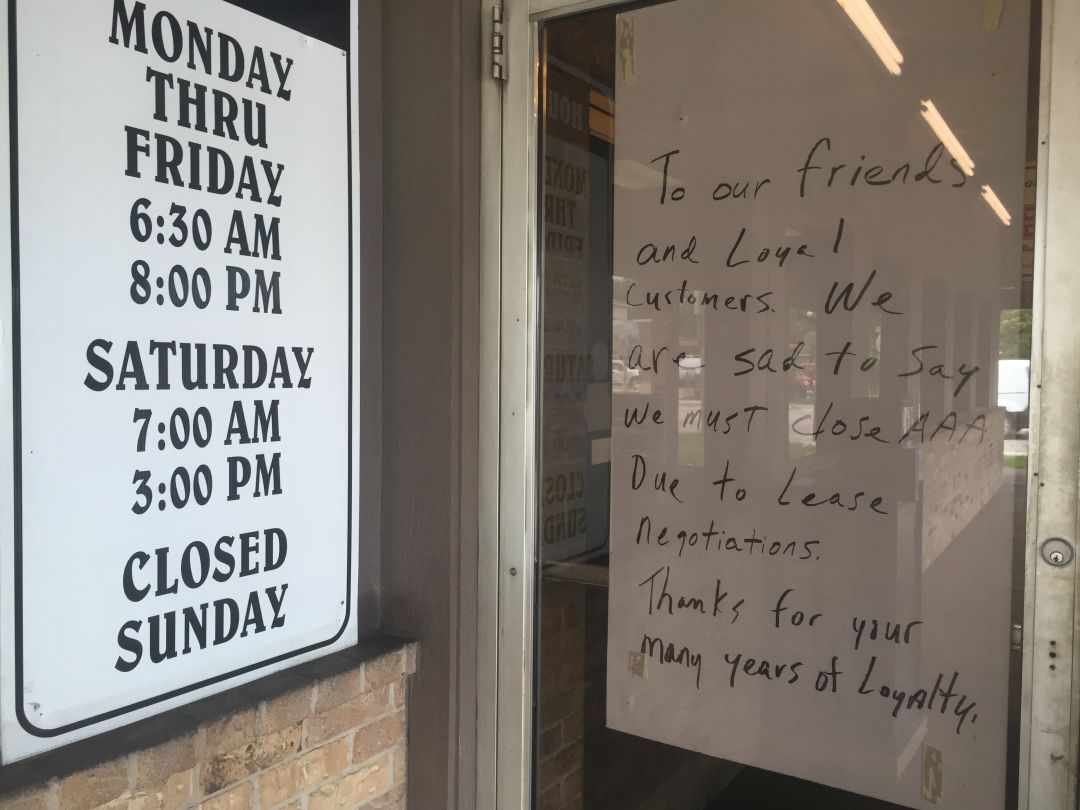 MONDAY
THRU
FRIDAY
6:30 AM
8:00 PM
SATURDAY
7:00 AM
3:00 PM
CLOSED
SUNDAY
To our friends
and Loyal
customers. We
are sad to say
we must close AAA.
Due to Lease
negotiations.
Thanks for your
many years of Loyalty.